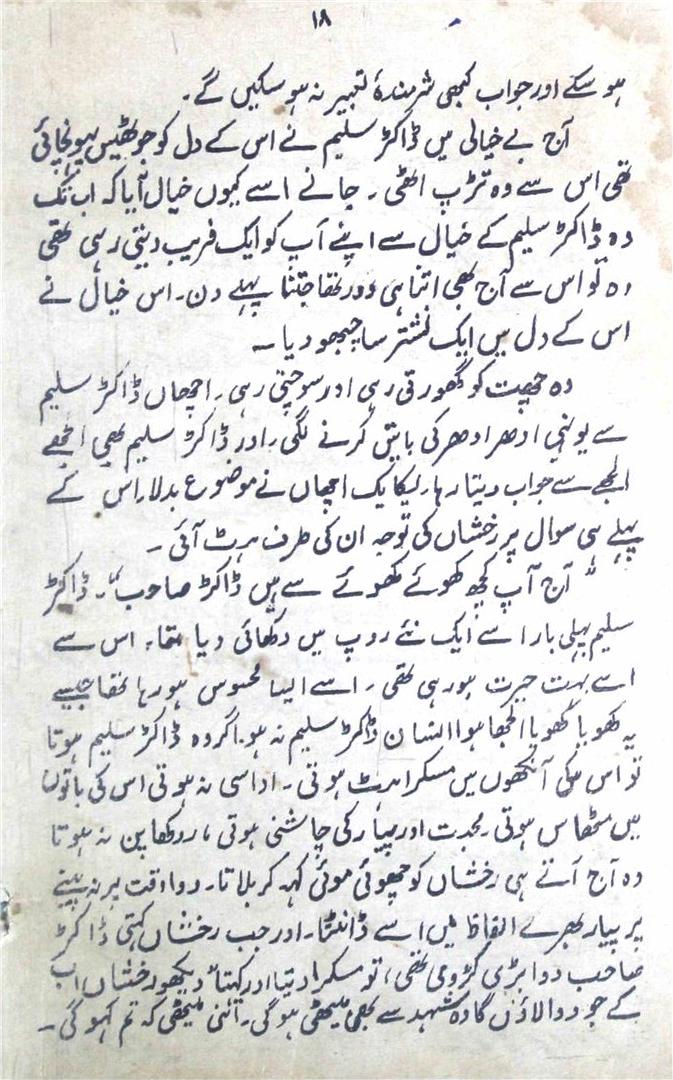 ۱۸
ہو سکے اور جو اب کبھی شرمندۂ تعبیر نہ ہو سکیں گے۔
آج بے خیالی میں ڈاکٹر سلیم نے اس کے دل کو جو ٹھیس پہونچائی
تھی اس سے وہ تڑپ اٹھی۔ جانے اسے کیوں خیال آیا کہ اب تک
وہ ڈاکٹر سلیم کے خیال سے اپنے آپ کو ایک فریب دیتی رہی تھی
وہ تو اس سے آج بھی اتنا ہی دور تھا جتنا پہلے دن۔ اس خیال نے
اس کے دل میں ایک نشتر سا چبھو دیا۔
وہ چھت کو گھورتی رہی اور سوچتی رہی۔ اچھاں ڈاکٹر سلیم
سے یونہی ادھر ادھر کی باتیں کرنے لگی۔ اور ڈاکٹر سلیم بھی الجھے
الجھے سے جواب دیتا رہا۔ یکایک اچھاں نے موضوع بدلا۔ اس کے
پہلے ہی سوال پر رخشاں کی توجہ ان کی طرف ہٹ آئی۔
"آج آپ کچھ کھوئے کھوئے سے ہیں ڈاکٹر صاحب"۔ ڈاکٹر
سلیم پہلی بار اسے ایک نئے روپ میں دکھائی دیا تھا۔ اس سے
اسے بہت حیرت ہو رہی تھی۔ اسے ایسا محسوس ہو رہا تھا جیسے
یہ کھویا کھویا الجھا ہوا انسان ڈاکٹر سلیم نہ ہو۔ اگر وہ ڈاکٹر سلیم ہوتا
تو اس کی آنکھوں میں مسکراہٹ ہوتی۔ اداسی نہ ہوتی اس کی باتوں
میں مٹھاس ہوتی۔ محبت اور پیار کی چاشنی ہوتی، روکھا پن نہ ہوتا
وہ آج آتے ہی رخشاں کو چھوئی موئی کہہ کر بلاتا۔ دوا وقت پر نہ پینے
پر پیار بھرے الفاظ میں اسے ڈانٹتا۔ اور جب رخشاں کہتی ڈاکٹر
صاحب دوا بڑی کڑوی تھی، تو مسکرا دیتا اور کہتا "دیکھو رخشاں اب
کے جو دوا لاؤں گا وہ شہد سے بھی میٹھی ہو گی۔ اتنی میٹھی کہ تم کہو گی۔